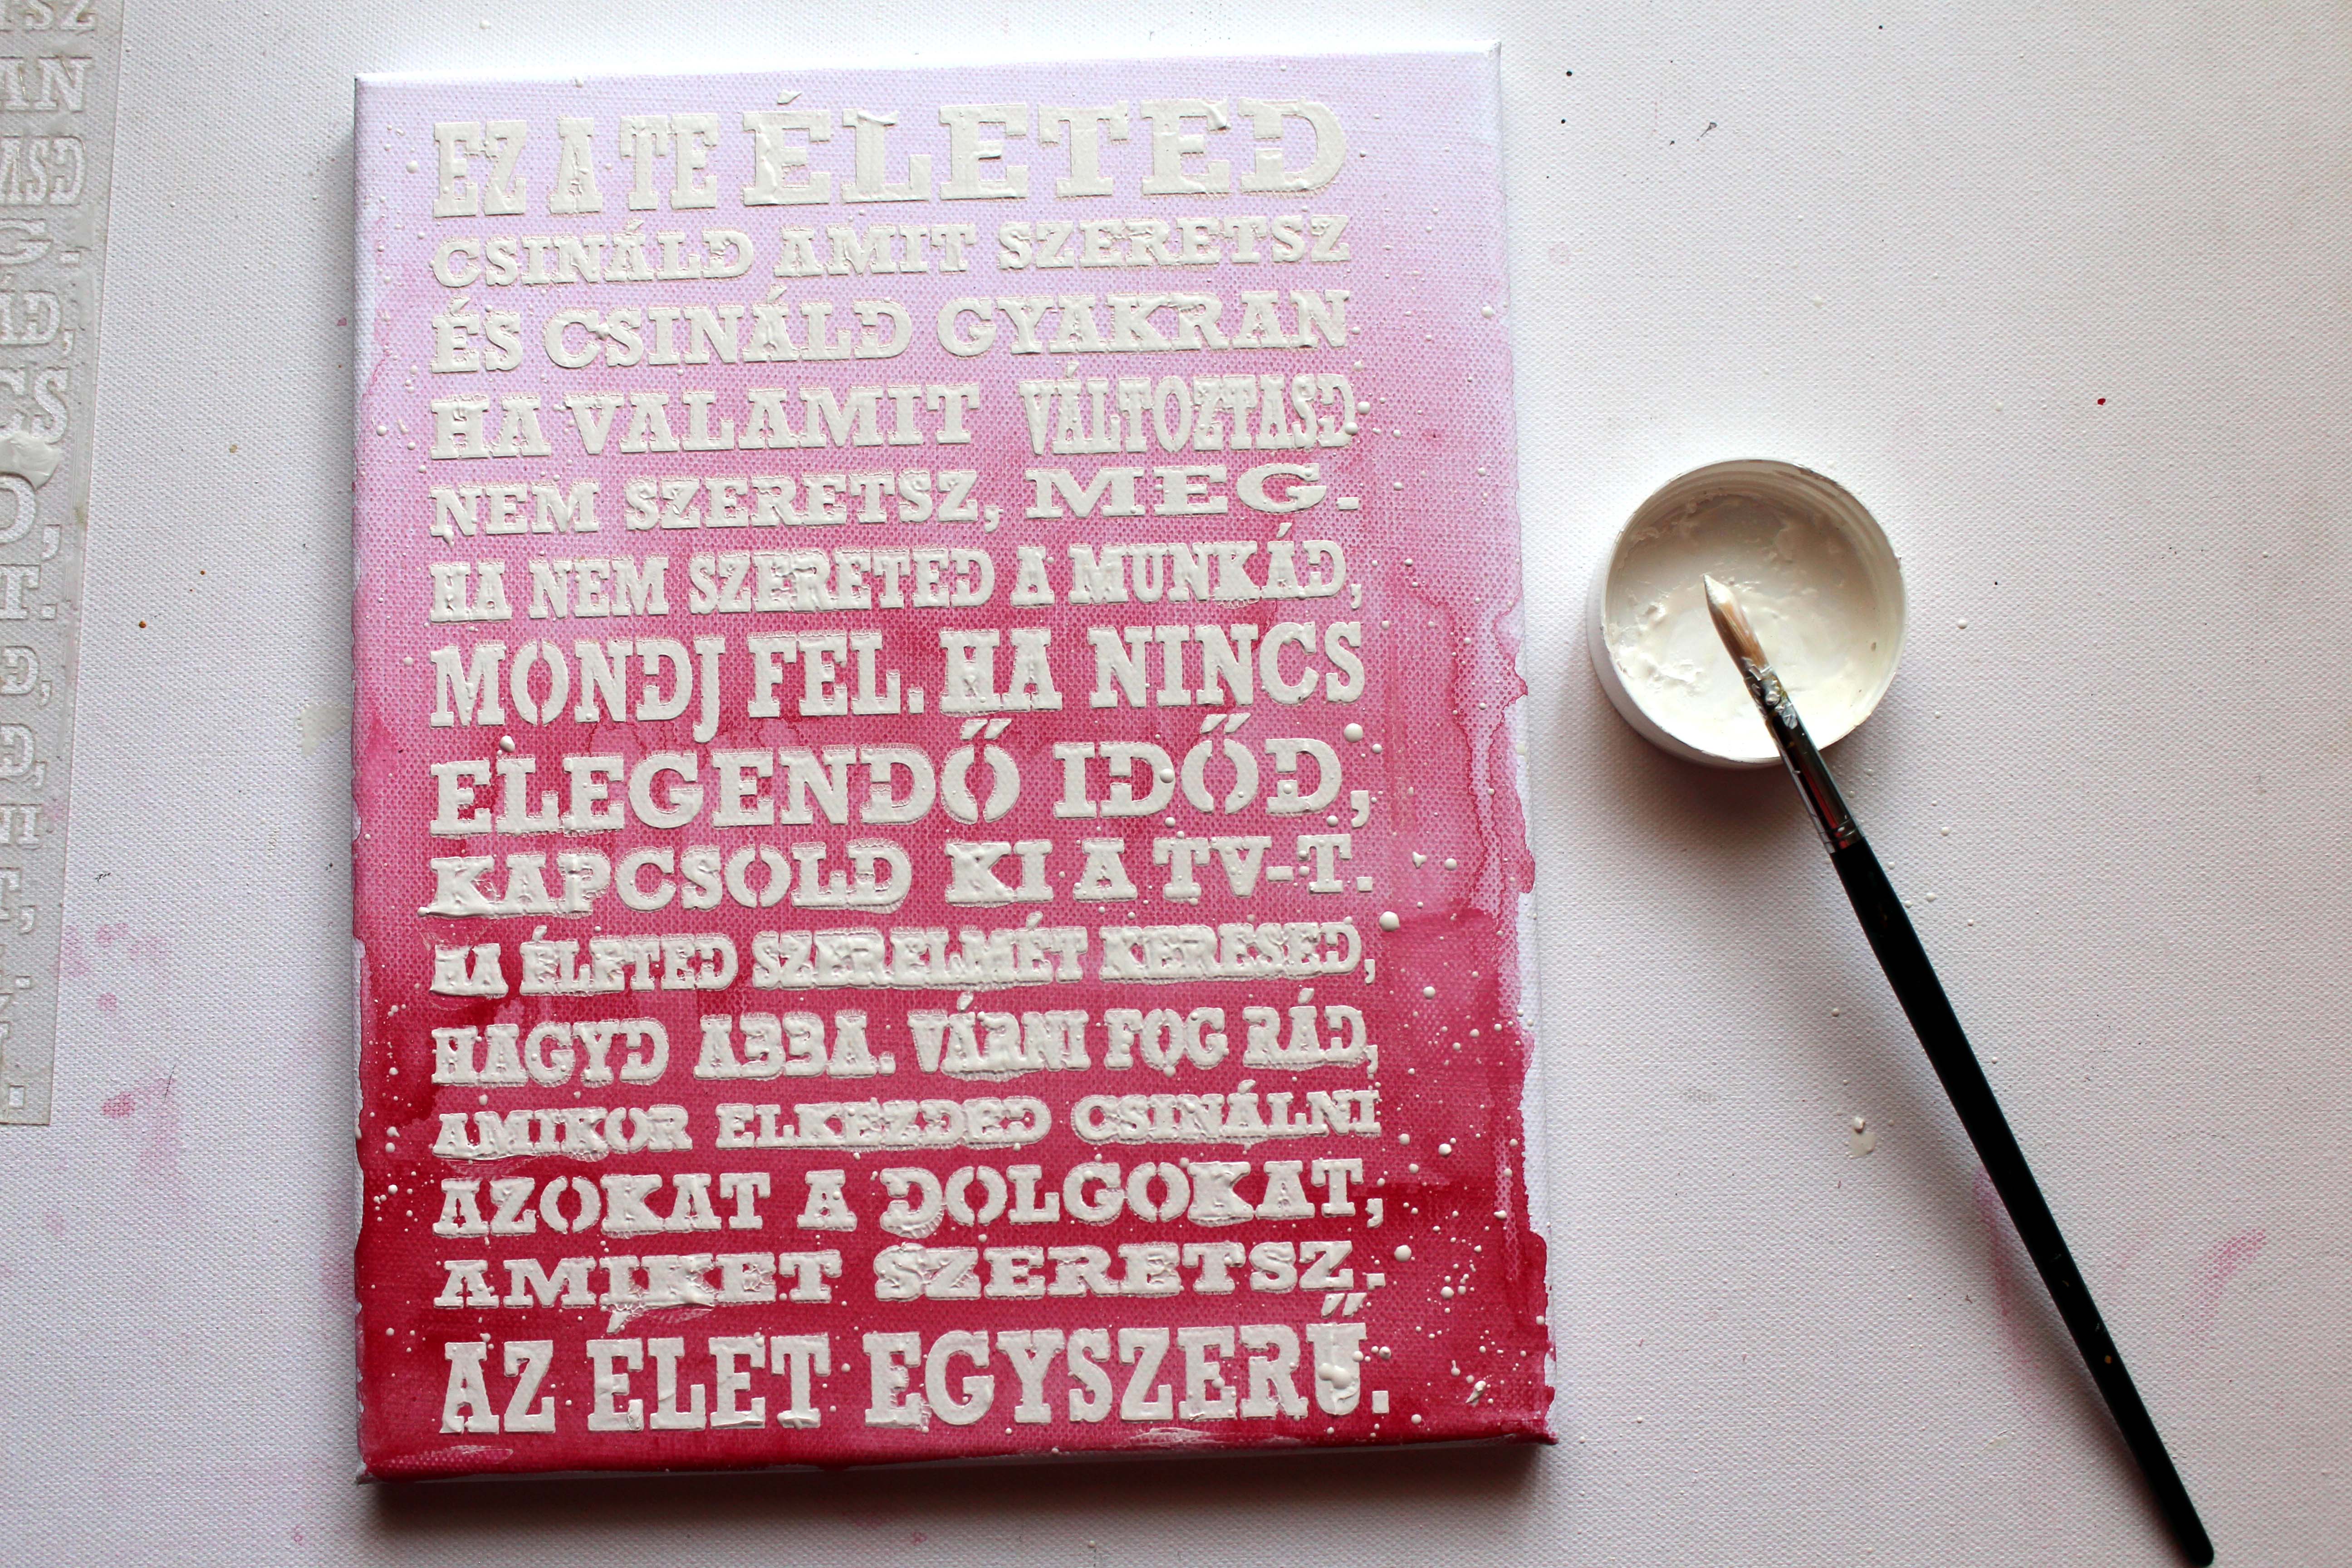 EZ A TE ÉLETED
CSINÁLD AMIT SZERETSZ
ÉS CSINÁLD GYAKRAN
HA VALAMIT VÁLTOZTASD
NEM SZERETSZ, MEG.
HA NEM SZERETED A MUNKÁD,
MONDJ FEL. HA NINCS
ELEGENDŐ IDŐD,
KAPCSOLD KI A TV-T.
HA ÉLETED SZERELMÉT KERESED,
HAGYD ABBA. VÁRNI FOG RÁD,
AMIKOR ELKEZDED CSINÁLNI
AZOKAT A DOLGOKAT,
AMIKET SZERETSZ.
AZ ÉLET EGYSZERŰ.